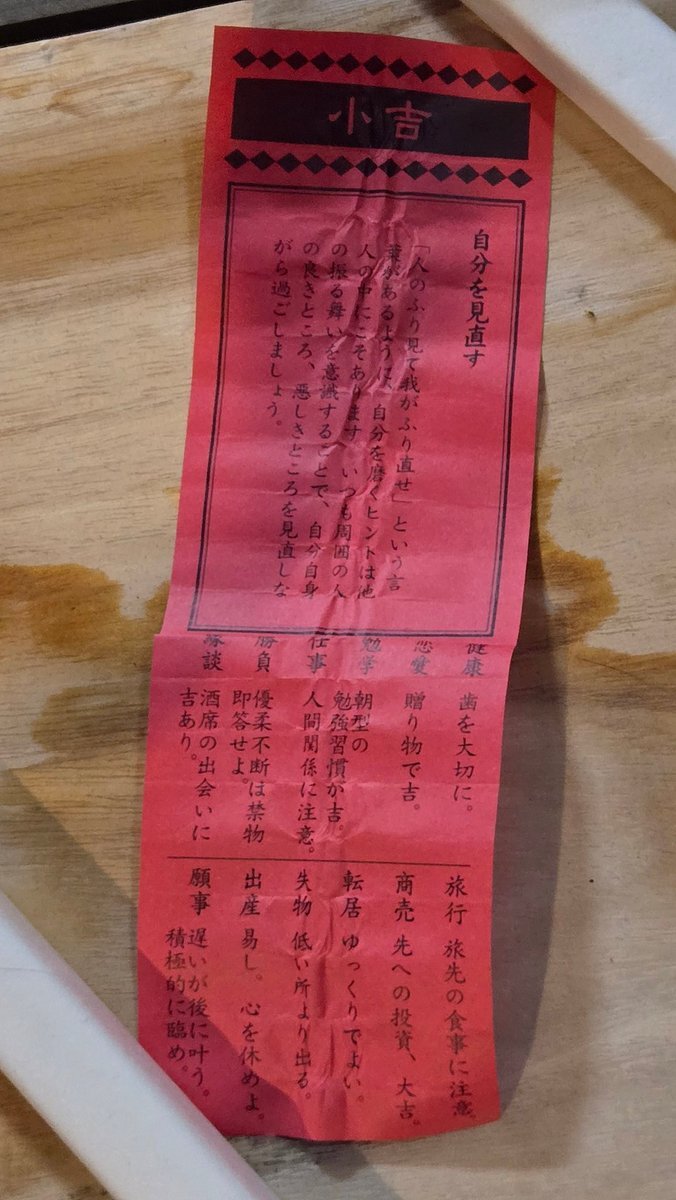 小吉
自分を見直す
「人のふり見て我がふり直せ」という言
葉があるように、自分を磨くヒントは他
人の中にこそあります。いつも周囲の人
の振る舞いを意識することで、自分自身
の良きところ、悪しきところを見直しな
がら過ごしましょう。
健康 歯を大切に。
恋愛 贈り物で吉。
勉学 朝型の
勉強習慣が吉。
仕事 人間関係に注意。
勝負 優柔不断は禁物
即答せよ。
縁談 酒席の出会いに
吉あり。
旅行 旅先の食事に注意。
商売 先への投資、大吉。
転居 ゆっくりでよい。
失物 低い所より出る。
出産 易し。心を休めよ。
願事 遅いが後に叶う。
積極的に臨め。